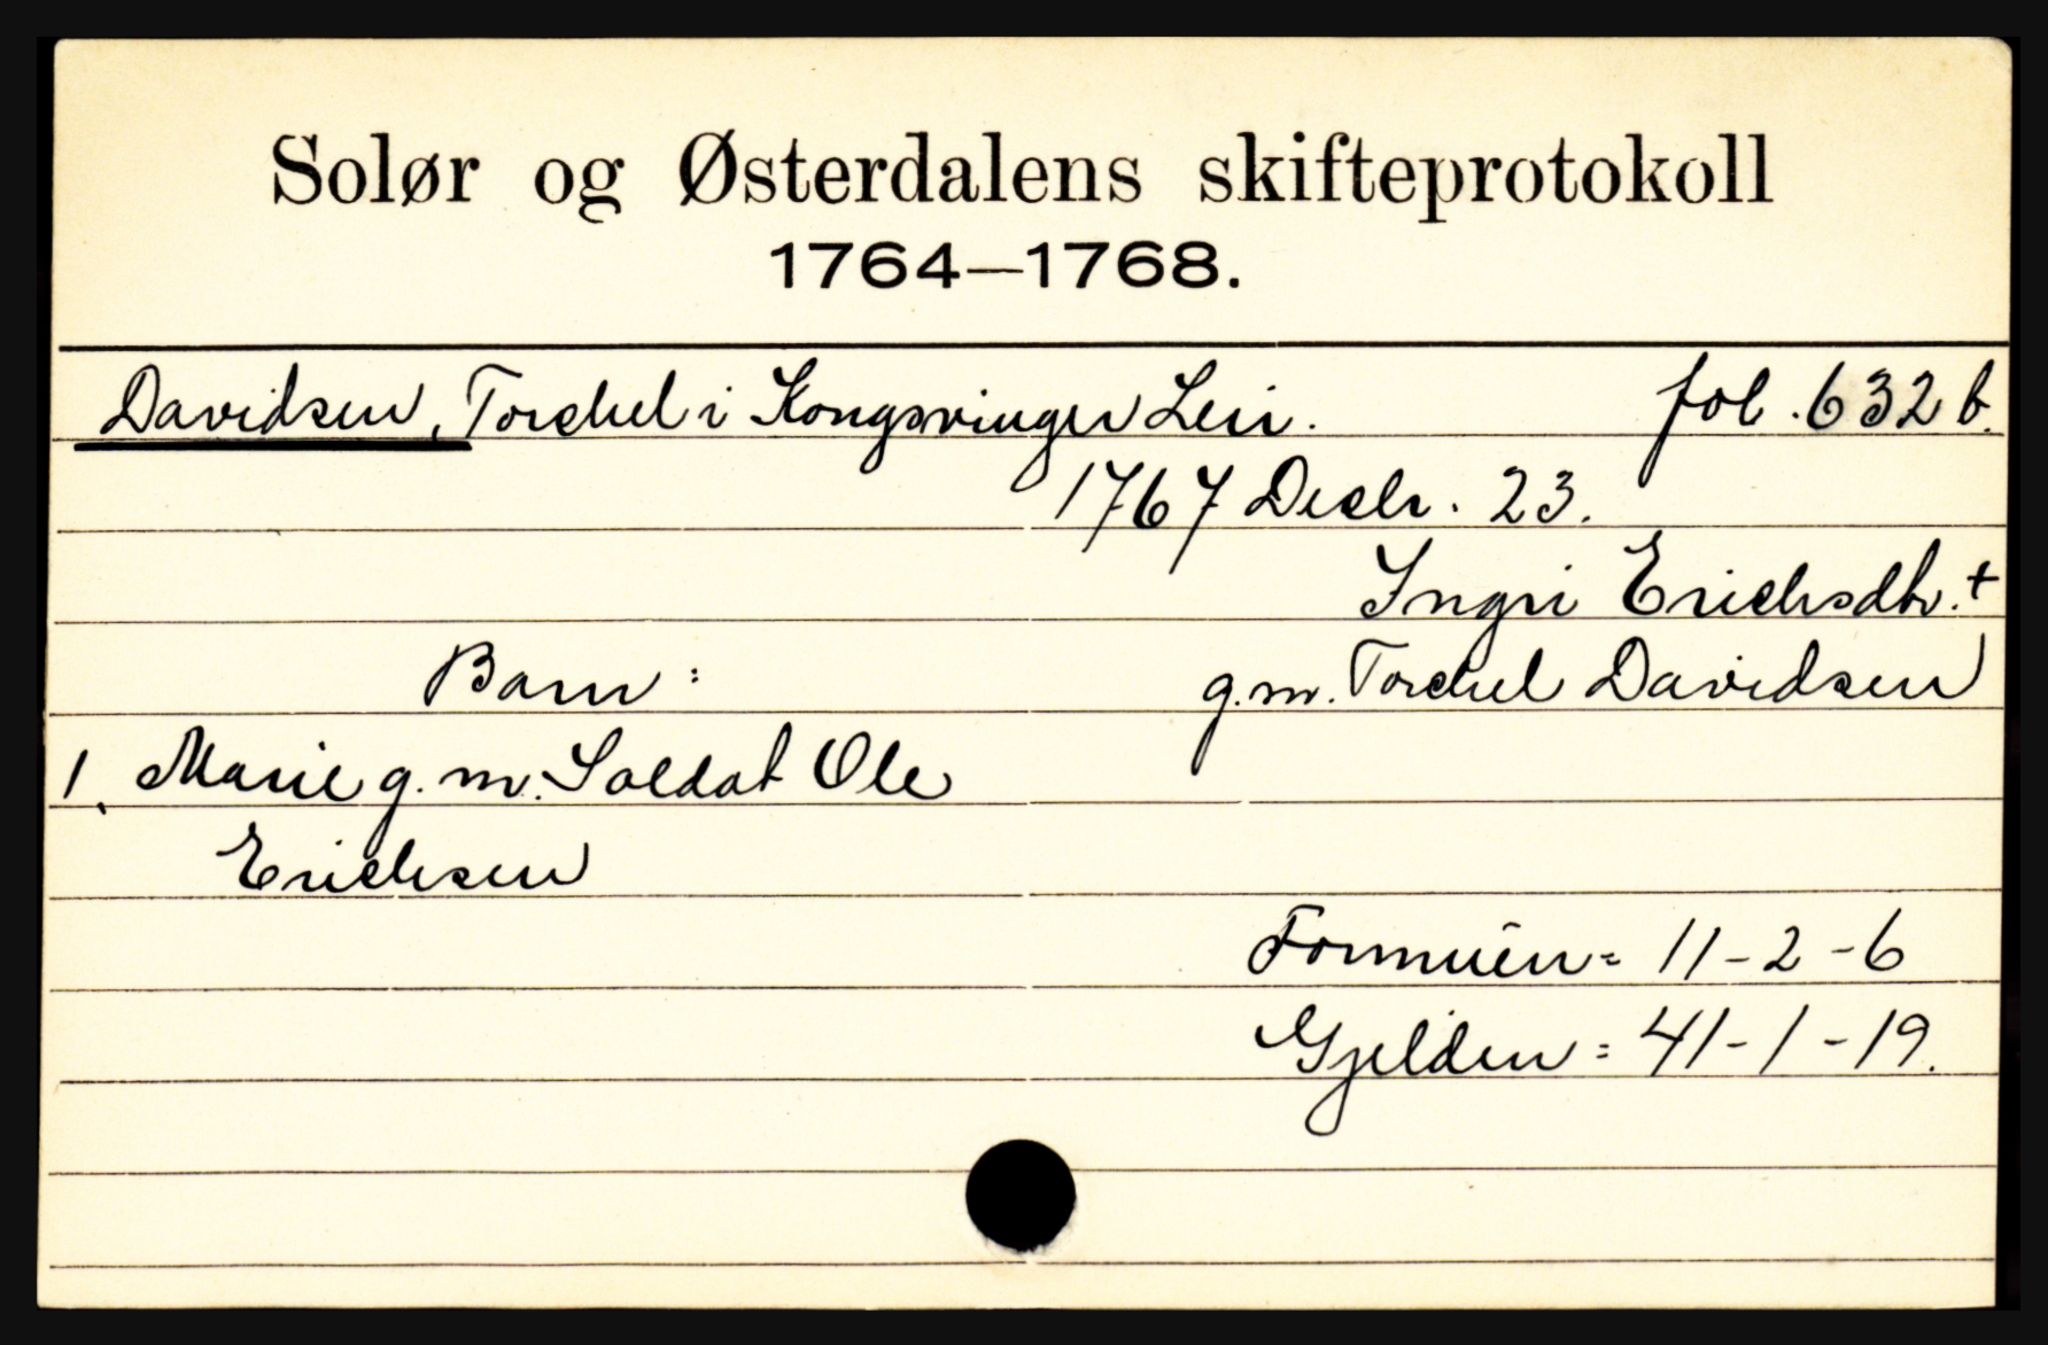 Solør og Østerdalens skifteprotokoll
1764—1768.
Davidsen, Torchel i Kongsvinger Leir. fol. 632 b.
1767 Decbr. 23.
Ingri Erichsdtr. +
Barn: g.m. Torchel Davidsen
1. Marie g.m. Soldat Ole
Erichsen
Formuen = 11 - 2 - 6
Gjelden = 41 - 1 - 19.